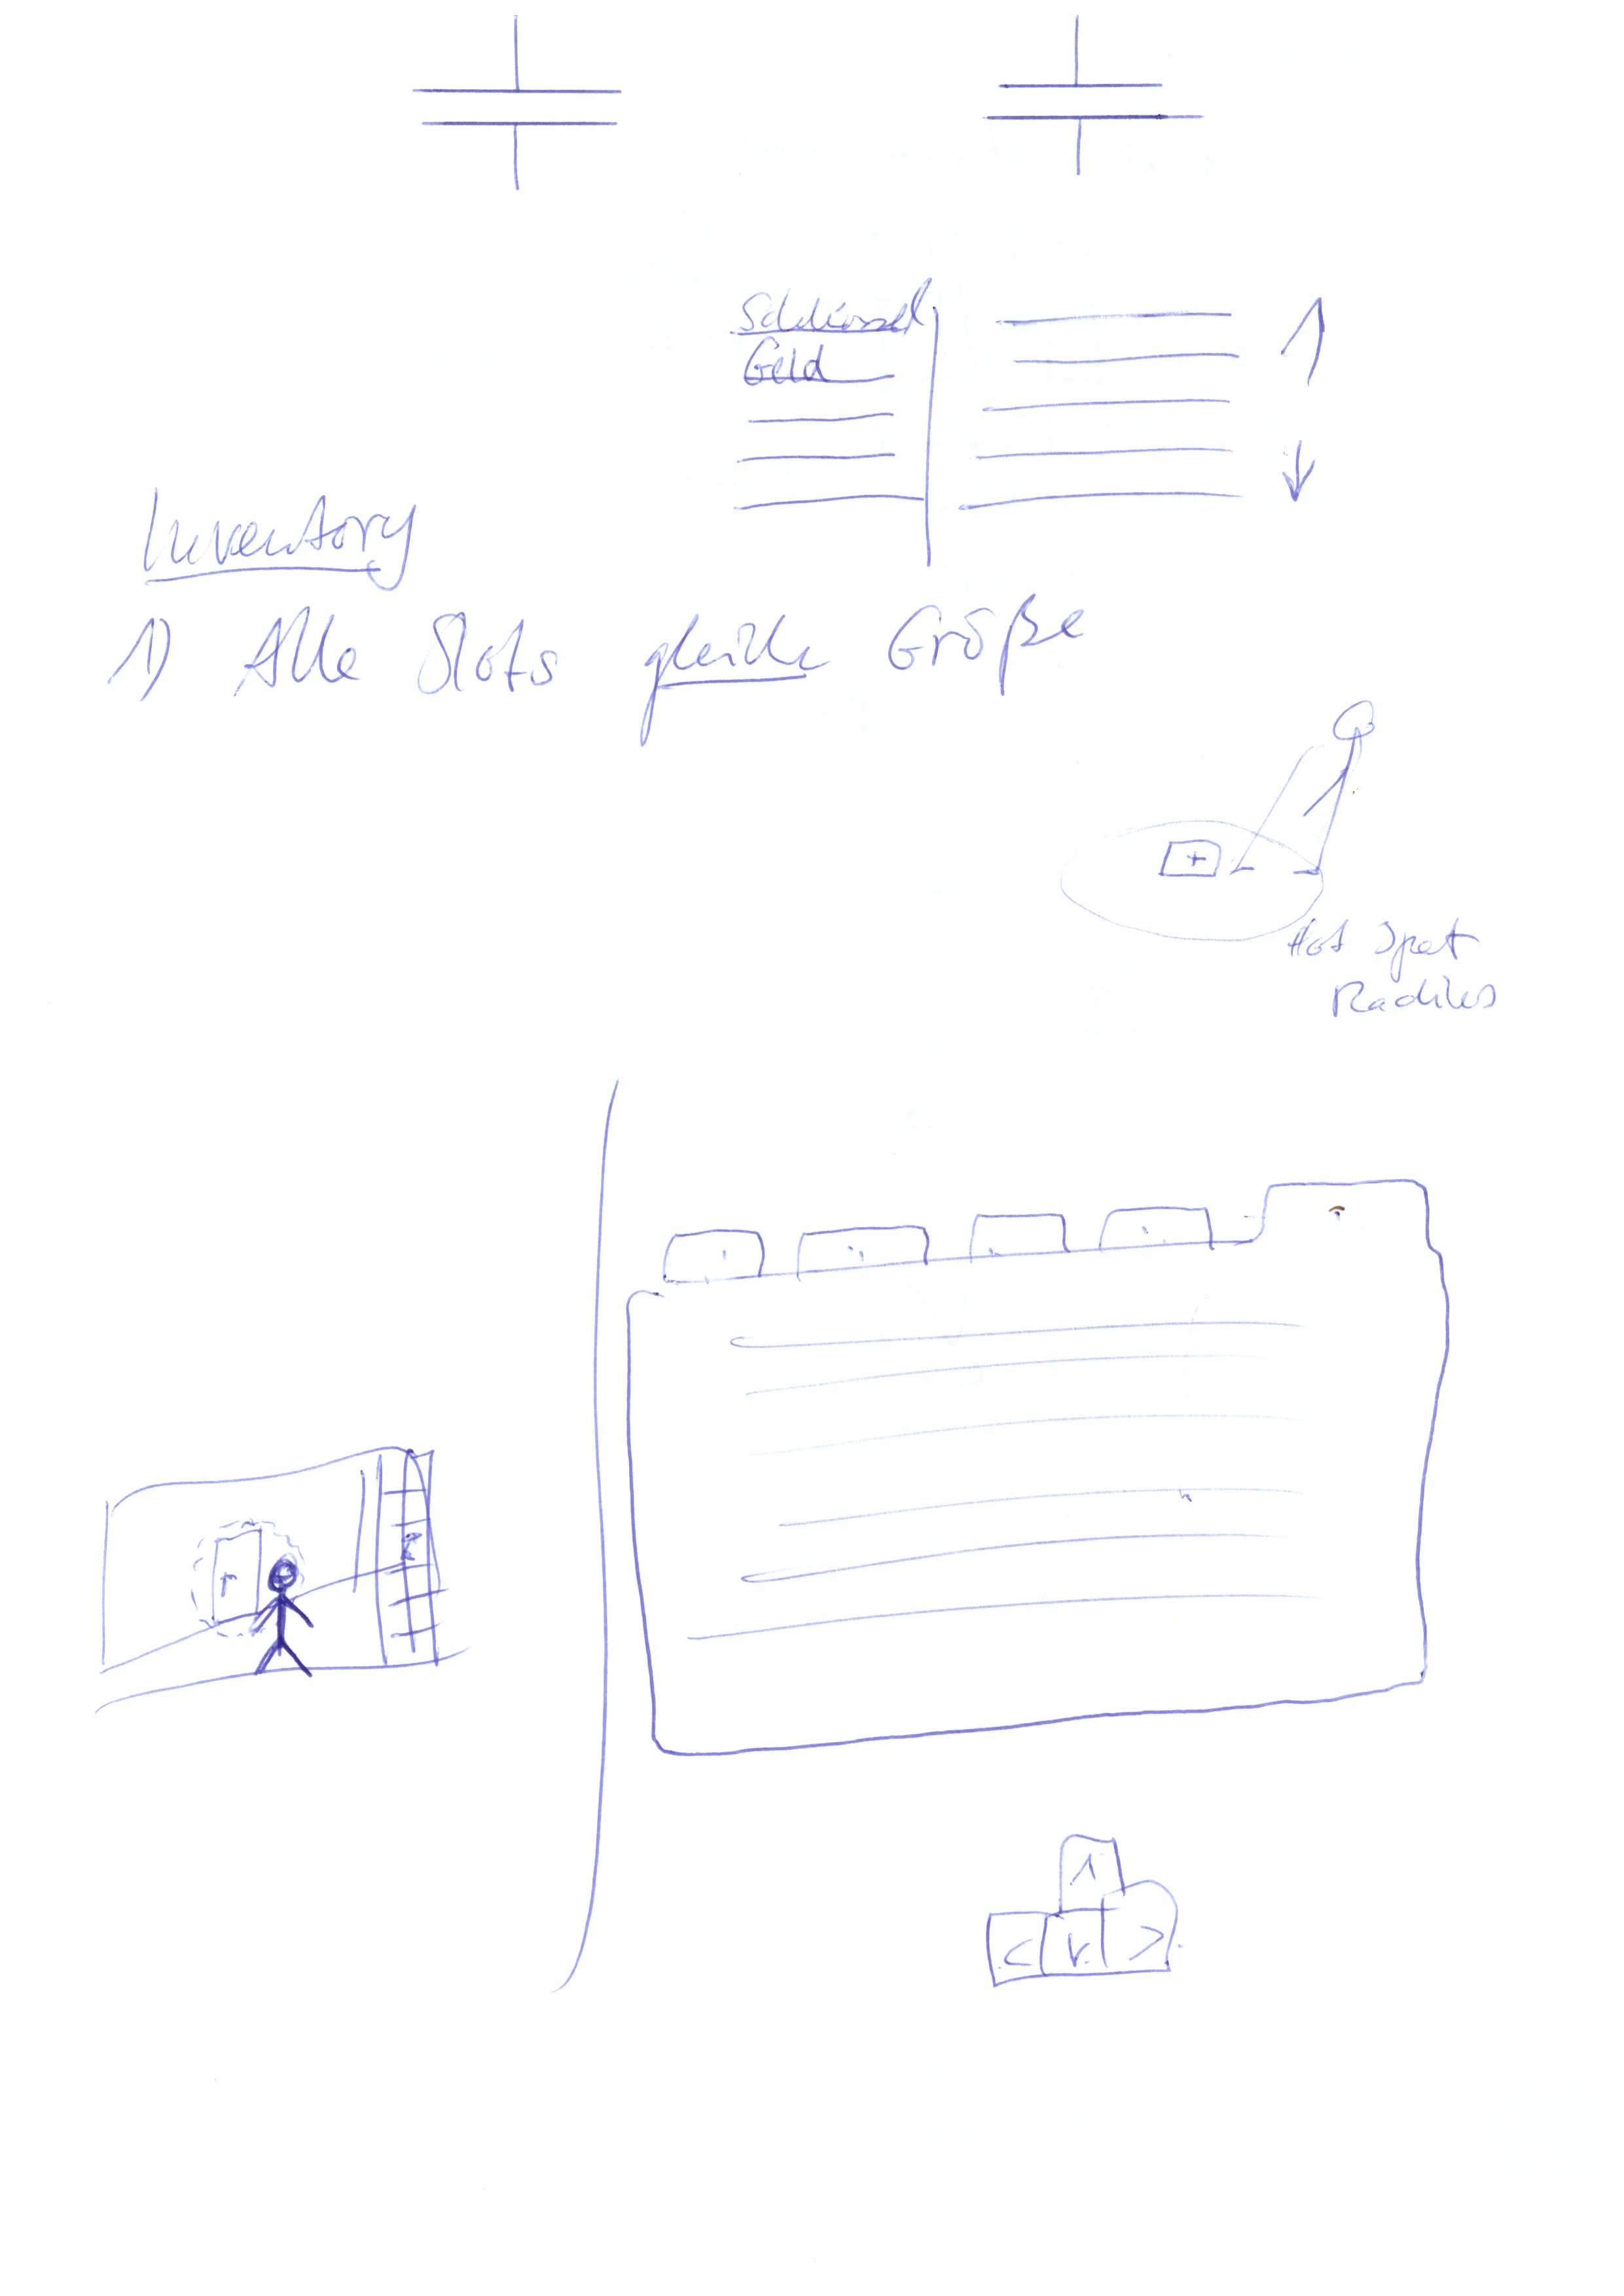 Schlüssel
Geld
Inventory
1) Alle Slots gleiche Größe
+
Hot Spot
Radius